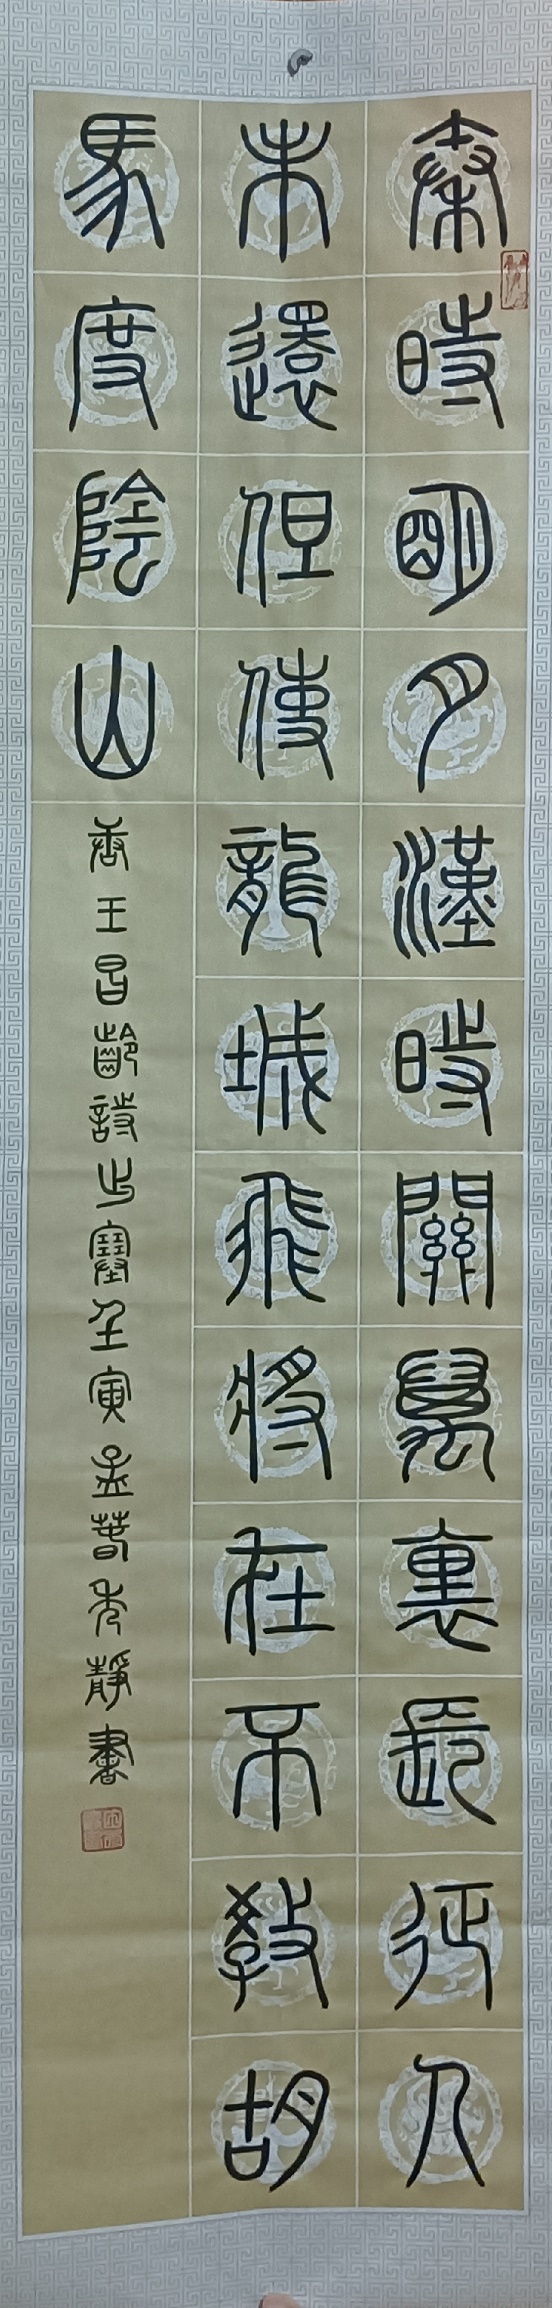 秦時朙月漢時關萬裏長征人
未還但使龍城飛將在不教胡
馬度陰山
唐王昌齡詩出塞壬寅孟春秀靜書